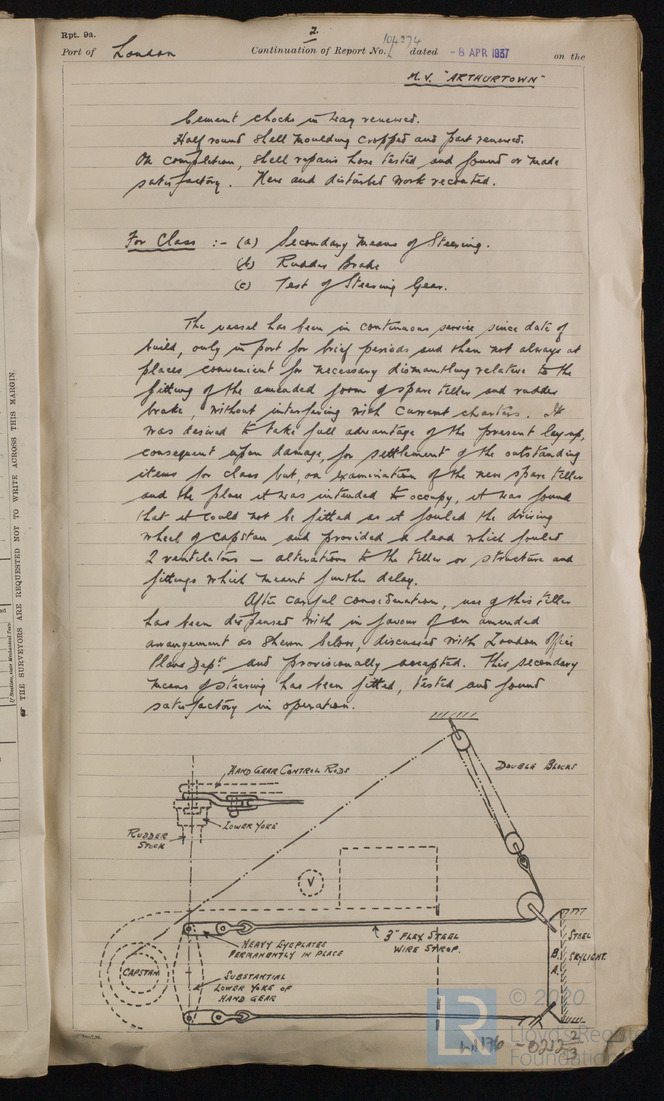 Rpt. 9a.
2.
Port of London Continuation of Report No. 104274 dated - 8 APR 1937 on the
M.V. "ARTHURTOWN"
Cement chocks in way renewed.
Half round shell moulding cropped and part renewed.
On completion, shell repairs hose tested and found or made
satisfactory. New and disturbed work recoated.
For Class :- (a) Secondary Means of Steering.
(b) Rudder Brake
(c) Test of Steering Gear.
The vessel has been in continuous service since date of
build, only in port for brief periods and then not always at
places convenient for necessary dismantling relative to the
fitting of the amended form of spare tiller and rudder
brake, without interfering with current charters. It
was desired to take full advantage of the present lay-up,
consequent upon damage, for settlement of the outstanding
items for class but, on examination of the new spare tiller
and the place it was intended to occupy, it was found
that it could not be fitted as it fouled the driving
wheel of capstan and provided a lead which fouled
2 ventilators - alterations to the tiller or structure and
fittings which meant further delay.
After careful consideration, use of this tiller
has been dispensed with in favour of an amended
arrangement as shewn below, discussed with London Office
Plans Dept. and provisionally accepted. This secondary
means of steering has been fitted, tested and found
satisfactory in operation.
HAND GEAR CONTROL RODS
DOUBLE BLOCKS
LOWER YOKE
RUDDER
STOCK
V
HEAVY EYEPLATES
PERMANENTLY IN PLACE
3" FLEX STEEL
WIRE STROP.
STEEL
SKYLIGHT.
CAPSTAN
SUBSTANTIAL
LOWER YOKE OF
HAND GEAR
THE SURVEYORS ARE REQUESTED NOT TO WRITE ACROSS THIS MARGIN.
LR
© 2020
Lloyd's Register
Foundation